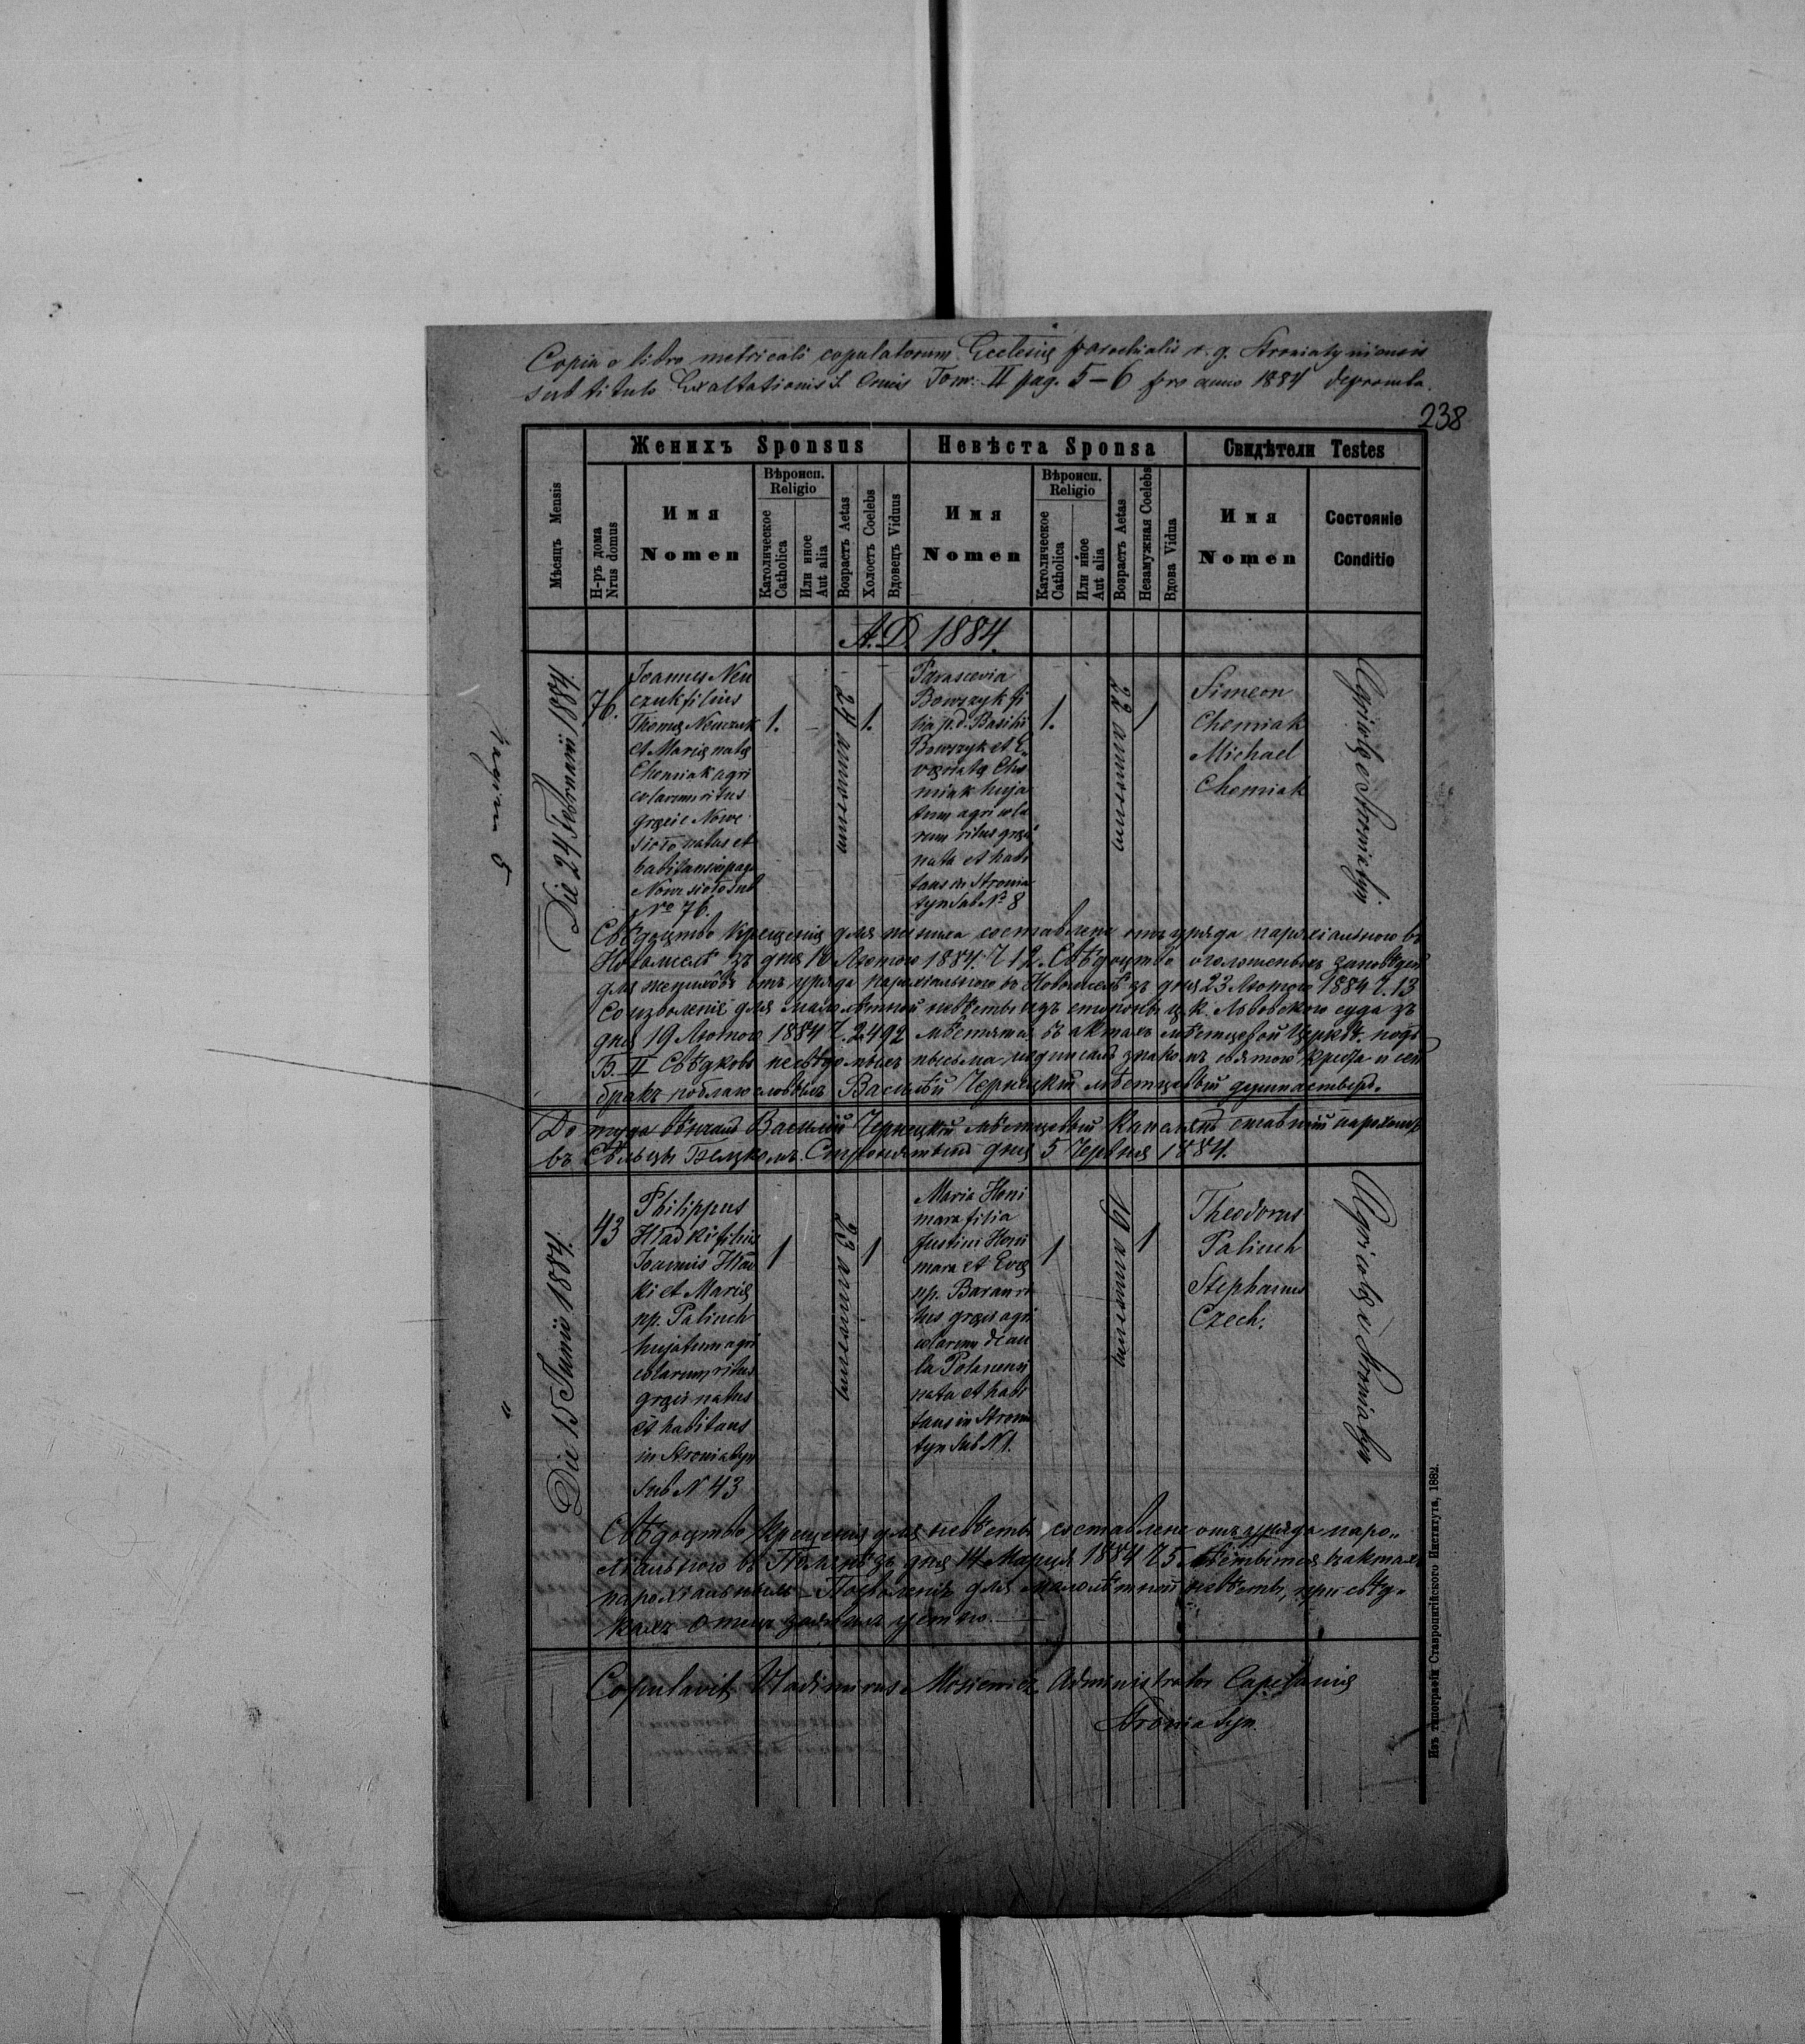 Copia e libro metricali copulatorum Ecclesiæ parochialis r. g. Stroniatyniensis
sub titulo Exaltationis S. Crucis Tom. II pag. 5–6 pro anno 1884 deprompta.
238
Женихъ Sponsus
Невѣста Sponsa
Свидѣтели Testes
Мѣсяцъ Mensis
Н-ръ дома
Nrus domus
Имя
Nomen
Вѣроисп.
Religio
Католическое
Catholica
Или иное
Aut alia
Возрастъ Aetas
Холостъ Coelebs
Вдовецъ Viduus
Имя
Nomen
Вѣроисп.
Religio
Католическое
Catholica
Или иное
Aut alia
Возрастъ Aetas
Незамужная Coelebs
Вдова Vidua
Имя
Nomen
Состояніе
Conditio
A. D. 1884.
pagina 5
Die 24 Februarii 1884.
76.
Joannes Nem
czuk filius
Thomæ Nemczuk
et Mariæ natæ
Chomiak agri
colarum ritus
græci e Nowe
sioło natus et
habitans in pago
Nowe sioło sub
No 76.
1.
24 annorum
1.
Parascevia
Bowszyk fi
lia p.d. Basilii
Bowszyk et E
natæ Cho
miak huja
tum agricola
rum ritus græci
nata et habi
tans in Stronia
tyn sub No 8
1.
22 annorum
1
Simeon
Chomiak
Michael
Chomiak
Agricolæ e Stroniatyn
Свѣдоцтво крещенія для жениха составлене отъ уряда парохіального въ
Новомселѣ зъ дня 10 Лютого 1884. Ч 12. Свѣдоцтво оголошеныхъ заповѣдей
для жениховъ отъ уряда парохіального въ Новомселѣ зъ дня 23 Лютого 1884 Ч. 13
Соизволеніе для малолѣтной невѣсты изъ стороны ц.к. Львовского суда зъ
дня 19 Лютого 1884 Ч. 2492 мѣстятся въ актахъ мѣстцевой Церкви подъ
В. II Свѣдковъ несвѣдомыхъ письма подписалъ знакомъ святого Креста и сей
бракъ поблагословилъ Василій Чернецкій мѣстцевый душпастырь.
До туда вѣнчалъ Василій Чернецкій мѣстцевый Капелянъ ставшій парохомъ
въ Сѣльци Белзкомъ. Стронятинъ дня 5 Червня 1884.
"
Die 15 Junii 1884.
43
Philippus
Hładki filius
Joannis Hład
ki et Mariæ
np. Paliuch
hujatum agri
colarum ritus
græci natus
et habitans
in Stroniatyn
sub N 43
1
23 annorum
1
Maria Honi
mara filia
Justini Honi
mara et Evæ
np. Baran ri
tus græci agri
colarum de au
la Polanensi
nata et habi
tans in Stronia
tyn sub N 1.
1
19 annorum
1
Theodorus
Paliuch
Stephanus
Czech.
Agricolæ e Stroniatyn
Свѣдоцтво Крещенія для невѣсты составлене отъ уряда паро„
хіального въ зъ дня 14 Марця 1884 Ч 5. мѣстится въ актахъ
парохіальныхъ – Позволеніе для малолѣтной невѣсты, при свѣд„
кахъ отецъ устно.
Copulavit Vladimirus Mosiewicz Administrator Capellaniæ
Stroniatyn
Изъ типографіи Ставропигійского Института, 1882.